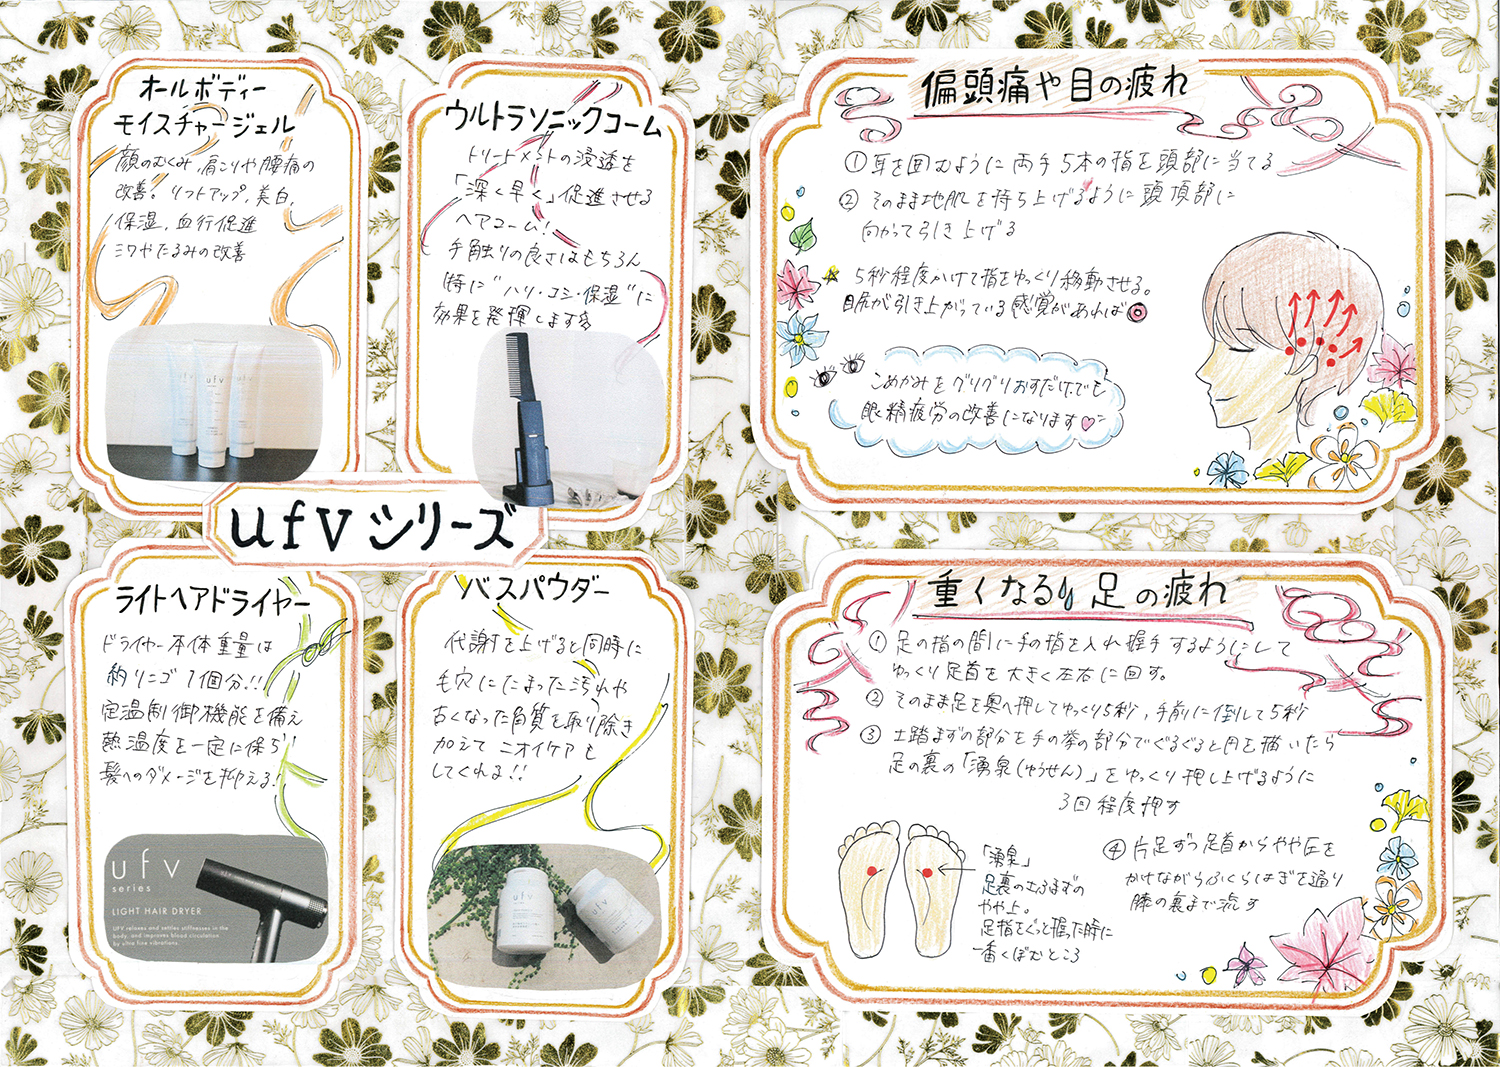 オールボディー
モイスチャージェル
顔のむくみ、肩こりや腰痛の
改善。リフトアップ、美白、
保湿、血行促進
シワやたるみの改善
ufv
ウルトラソニックコーム
トリートメントの浸透を
「深く早く」促進させる
ヘアコーム!
手触りの良さはもちろん
特に"ハリ・コシ・保湿"に
効果を発揮します
ufvシリーズ
ライトヘアドライヤー
ドライヤー本体重量は
約リンゴ1個分!!
定温制御機能を備え
熱温度を一定に保ち
髪へのダメージを抑える!
ufv
series
LIGHT HAIR DRYER
UFV relaxes and settles stiffnesses in the
body, and improves blood circulation
by ultra fine vibrations.
バスパウダー
代謝を上げると同時に
毛穴にたまった汚れや
古くなった角質を取り除き
加えてニオイケアも
してくれる!!
ufv
ufv
偏頭痛や目の疲れ
①耳を囲むように両手5本の指を頭部に当てる
②そのまま地肌を持ち上げるように頭頂部に
向かって引き上げる
☆5秒程度かけて指をゆっくり移動させる。
目尻が引き上がっている感覚があれば◎
こめかみをグリグリおすだけでも
眼精疲労の改善になります♡
重くなる足の疲れ
①足の指の間に手の指を入れ握手するようにして
ゆっくり足首を大きく左右に回す。
②そのまま足を奥へ押してゆっくり5秒、手前に倒して5秒
③土踏まずの部分を手の拳の部分でぐるぐると円を描いたら
足の裏の「湧泉(ゆうせん)」をゆっくり押し上げるように
3回程度押す
「湧泉」
足裏の土ふまずの
やや上。
足指をぐっと握った時に
一番くぼむところ
④片足ずつ足首からやや圧を
かけながらふくらはぎを通り
膝の裏まで流す